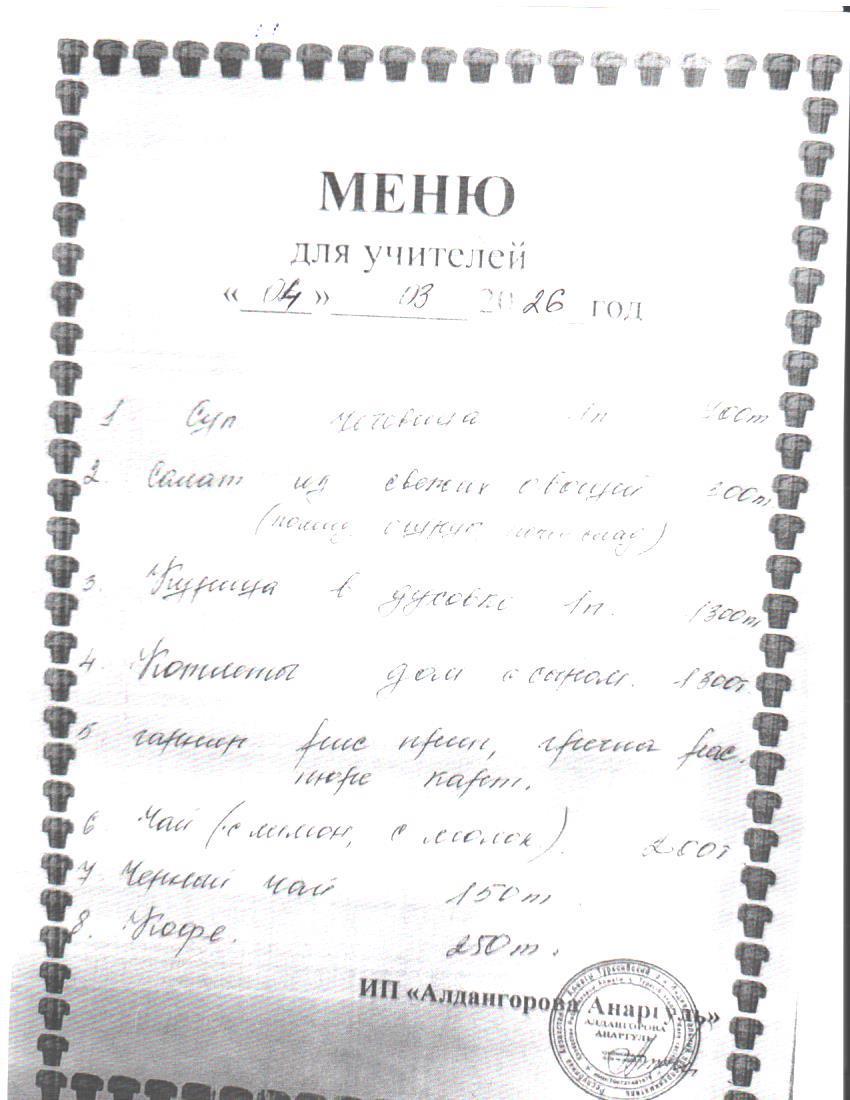 МЕНЮ
для учителей
«04» 03 2026 год
1 Суп чечевица 1п
2. Салат из свежих овощей
(помид, огурцы,
3. Курица в духовке 1п. 1300т
4. Котлеты дом с сыром. 1300т.
5 гарнир рис прип, гречка рас.
пюре карт.
6 Чай (с лимон, с молок.) 200т
7 Черный чай 150т
8. Кофе. 250т.
ИП «Алдангорова Анаргуль»
АЛДАНГОРОВА
АНАРГУЛЬ